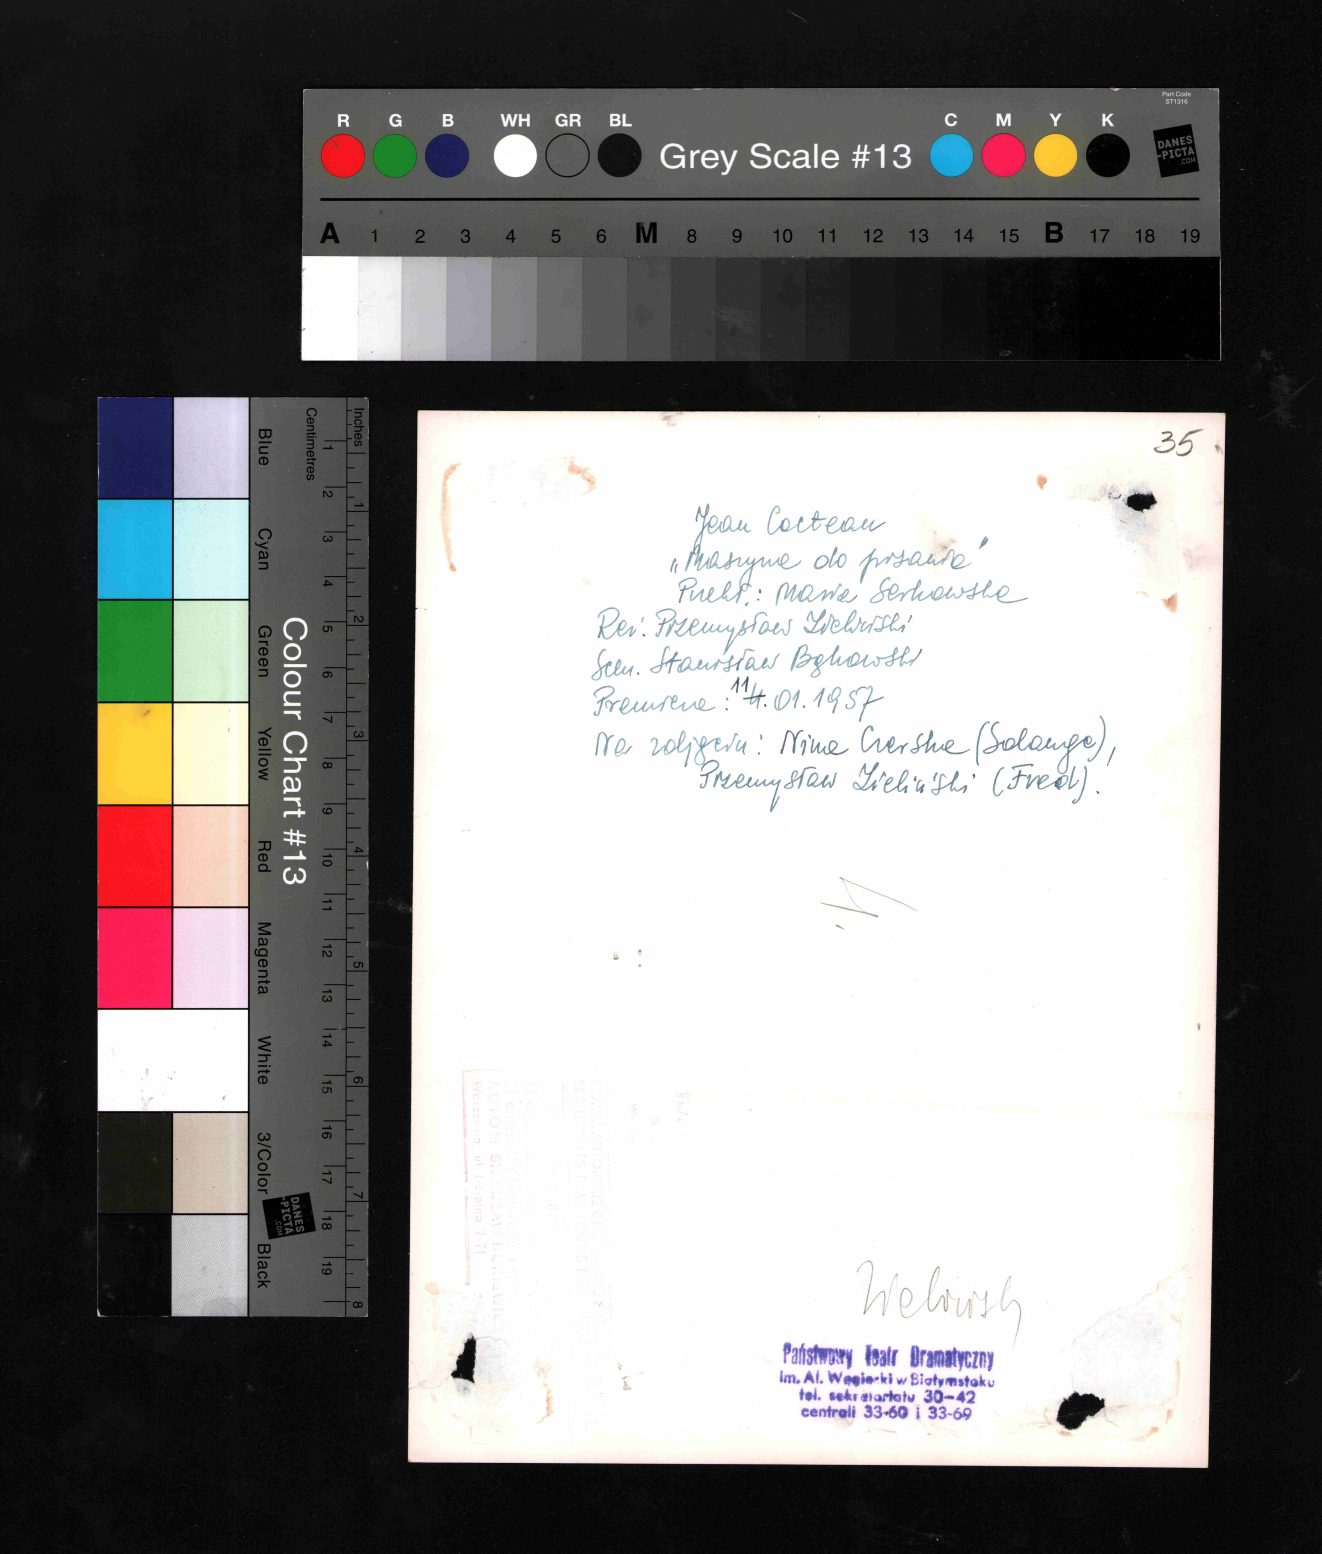 Part Code
ST1316
R G B WH GR BL Grey Scale #13 C M Y K
DANES
-PICTA
.COM
A 1 2 3 4 5 6 M 8 9 10 11 12 13 14 15 B 17 18 19
Colour Chart #13
Blue
Cyan
Green
Yellow
Red
Magenta
White
3/Color
Black
Centimetres
1 2 3 4 5 6 7 8 9 10 11 12 13 14 15 16 17 18 19
Inches
1 2 3 4 5 6 7 8
DANES
-PICTA
.COM
35
Jean Cocteau
„Maszyna do pisania”
Przekł.: Maria Serkowska
Reż. Przemysław Zieliński
Scen. Stanisław Bąkowski
Premiera: 11.01.1957
Na zdjęciu: Nina Czerska (Solange),
Przemysław Zieliński (Fred).
Państwowy Teatr Dramatyczny
im. Al. Węgierki w Białymstoku
tel. sekretariatu 30-42
centrali 33-60 i 33-69